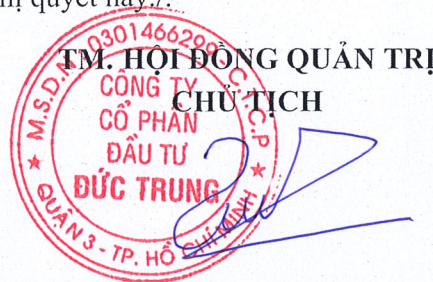 ị quyết này./.
TM. HỘI ĐỒNG QUẢN TRỊ
CHỦ TỊCH
M.S.D.N: 0301466299 - C.T.C.P
CÔNG TY
CỔ PHẦN
ĐẦU TƯ
ĐỨC TRUNG
QUẬN 3 - TP. HỒ CHÍ MINH